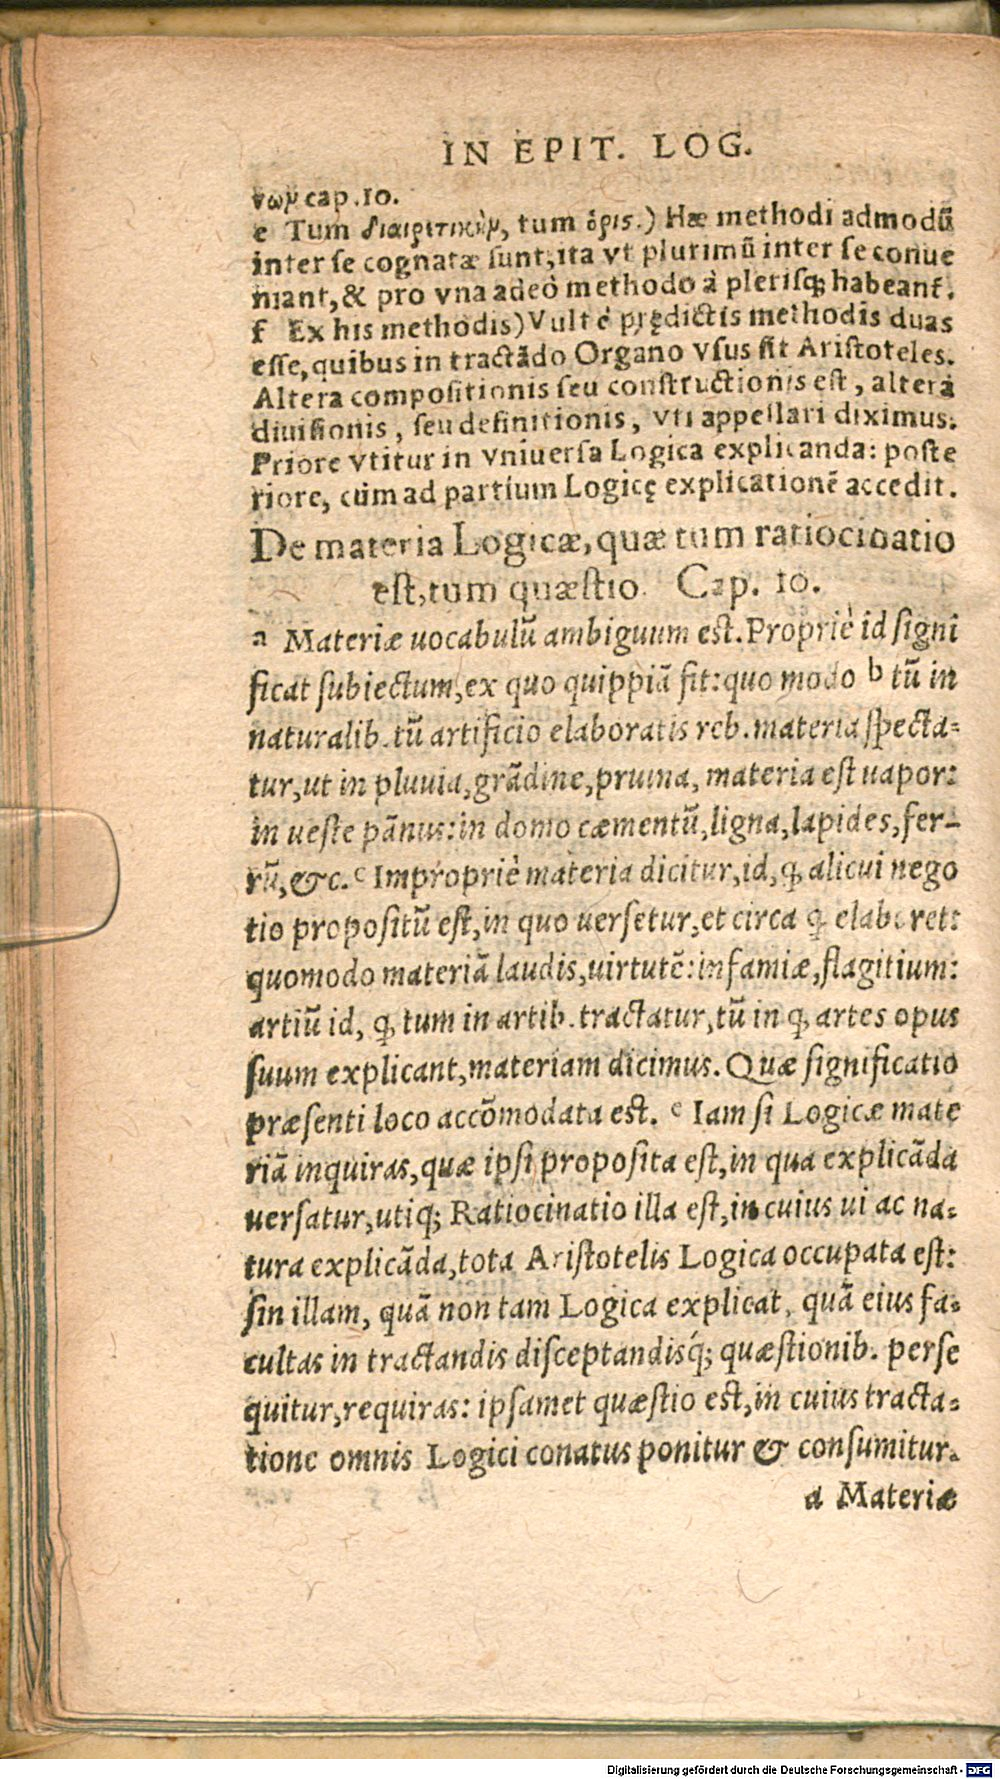 IN EPIT. LOG.
νωμ cap. 10.
e Tum διαιρετικὴν, tum ὁρισ.) Hæ methodi admodū
inter se cognatæ sunt, ita vt plurimū inter se conue
niant, & pro vna adeò methodo à plerisq; habeant.
f Ex his methodis) Vult è prędictis methodis duas
esse, quibus in tractãdo Organo vsus sit Aristoteles.
Altera compositionis seu constructionis est, altera
diuisionis, seu definitionis, vti appellari diximus.
Priore vtitur in vniuersa Logica explicanda: poste
riore, cùm ad partium Logicę explicationē accedit.
De materia Logicæ, quæ tum ratiocinatio
est, tum quæstio. Cap. 10.
a Materiæ uocabulū ambiguum est. Propriè id signi
ficat subiectum, ex quo quippiã fit: quo modo b tū in
naturalib. tū artificio elaboratis reb. materia specta-
tur, ut in pluuia, grãdine, pruina, materia est uapor:
in ueste pãnus: in domo cæmentū, ligna, lapides, fer-
rū, &c. c Impropriè materia dicitur, id, q̃ alicui nego
tio propositū est, in quo uersetur, et circa q̃ elaboret:
quomodo materiã laudis, uirtutē: infamiæ, flagitium:
artiū id, q̃ tum in artib. tractatur, tū in q̃ artes opus
suum explicant, materiam dicimus. Quæ significatio
præsenti loco accōmodata est. e Iam si Logicæ mate
riã inquiras, quæ ipsi proposita est, in qua explicãda
uersatur, utiq; Ratiocinatio illa est, in cuius ui ac na-
tura explicãda, tota Aristotelis Logica occupata est:
sin illam, quã non tam Logica explicat, quã eius fa-
cultas in tractandis disceptandisq́; quæstionib. perse
quitur, requiras: ipsamet quæstio est, in cuius tracta-
tione omnis Logici conatus ponitur & consumitur.
a Materiæ
Digitalisierung gefördert durch die Deutsche Forschungsgemeinschaft - DFG